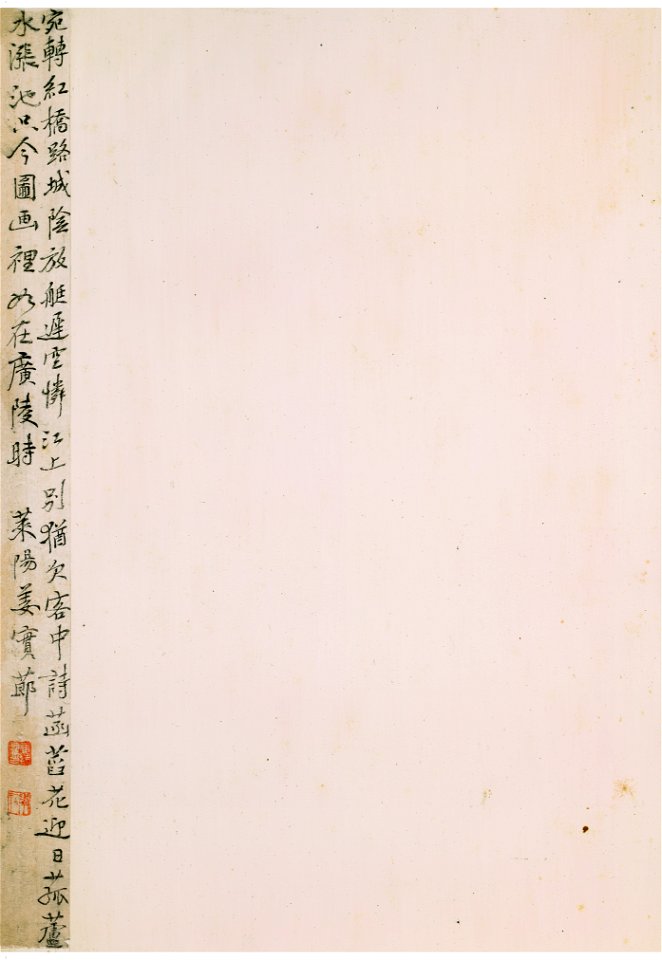 宛轉紅橋路城陰放艇遲空憐江上別猶欠客中詩菡萏花迎日菰蘆
水漲池只今圖画裡如在廣陵時　萊陽姜實節